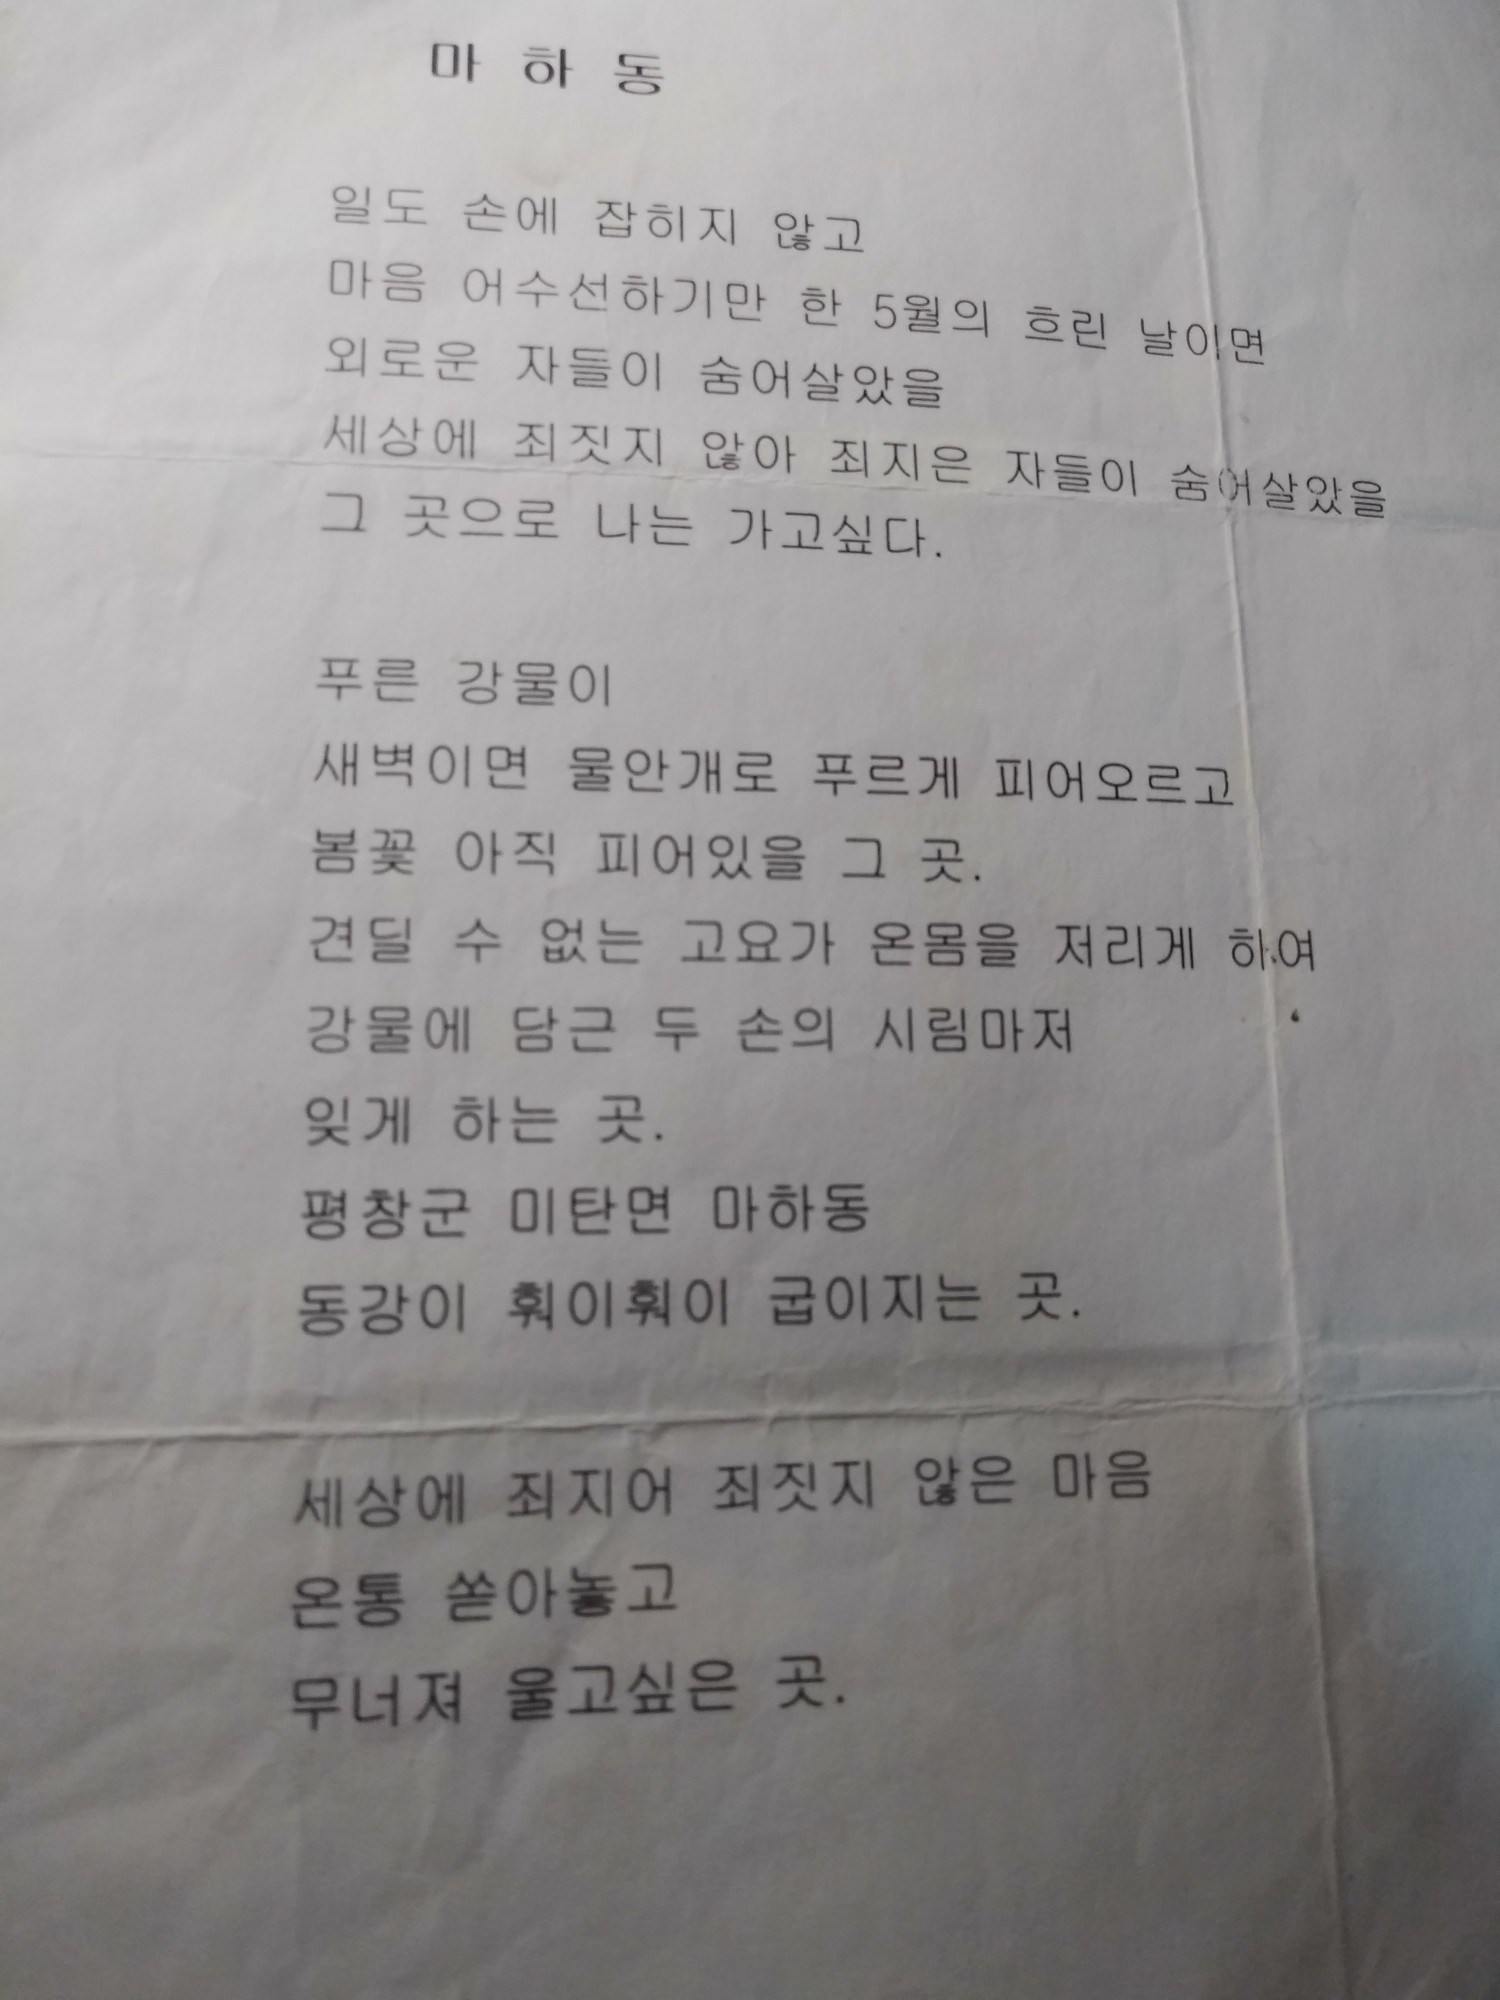 마 하 동
일도 손에 잡히지 않고
마음 어수선하기만 한 5월의 흐린 날이면
외로운 자들이 숨어살았을
세상에 죄짓지 않아 죄지은 자들이 숨어살았을
그 곳으로 나는 가고싶다.
푸른 강물이
새벽이면 물안개로 푸르게 피어오르고
봄꽃 아직 피어있을 그 곳.
견딜 수 없는 고요가 온몸을 저리게 하여
강물에 담근 두 손의 시림마저
잊게 하는 곳.
평창군 미탄면 마하동
동강이 훠이훠이 굽이지는 곳.
세상에 죄지어 죄짓지 않은 마음
온통 쏟아놓고
무너져 울고싶은 곳.